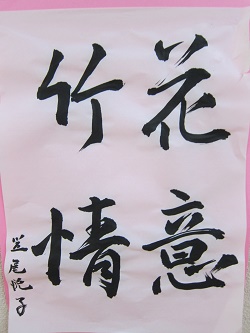 花意
竹情
笠尾悦子